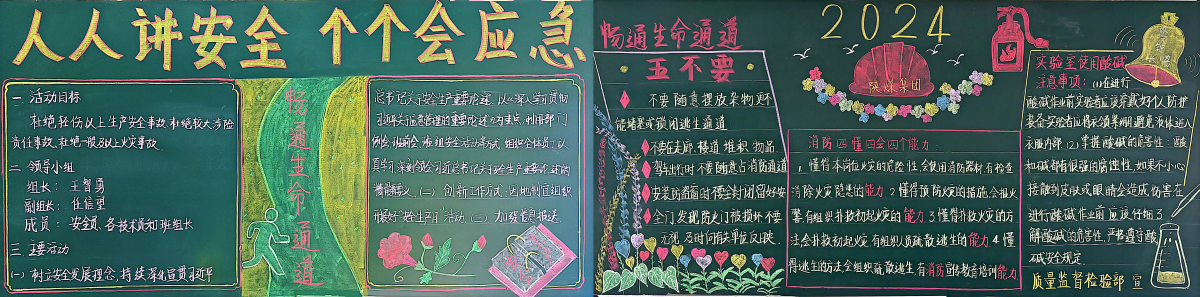 人人讲安全 个个会应急
一 活动目标
杜绝轻伤以上生产安全事故,杜绝较大涉险
责任事故,杜绝一般及以上火灾事故
二 领导小组
组长: 王智勇
副组长: 任信望
成员: 安全员、各技术员和班组长
三 主要活动
(一) 树立安全发展理念,持续深化宣贯习近平
畅通生命通道
总书记关于安全生产重要论述,以《深入学习贯彻
习近平关于应急管理的重要论述》为重点,利用部门
例会、班前会、班组安全活动等,组织全体员工认
真学习,深刻领会习近平总书记关于安全生产重要论述的
精髓要义,(二) 创新工作方式,因地制宜组织
开展好"安全生产月"活动,(三) 加强信息报送.
畅通生命通道
五不要
不要随意摆放杂物更不
能堵塞或锁闭逃生通道
不要在走廊、楼道堆积物品
驾车出行时不要随意占消防通道
安装防盗窗时不要全封闭留好安
全门发现防火门被损坏不要
无视,及时向有关单位反映.
2024
陕煤集团
消防四懂四会四个能力
1.懂得本岗位火灾的危险性,会使用消防器材,有检查
消除火灾隐患的能力 2.懂得预防火灾的措施,会报火
警,有组织扑救初起火灾的能力 3.懂得扑救火灾的方
法会扑救初起火灾,有组织人员疏散逃生的能力 4.懂
得逃生的方法会组织疏散逃生有消防宣传教育培训能力
实验室使用酸碱
注意事项: (1)在进行
酸碱作业前实验者应该穿戴好个人防护
装备,实验者应将衣领束绷,避免液体进入
衣服内部 (2)掌握酸碱的危害性: 酸
和碱都有很强的腐蚀性,如果不小心
接触到皮肤或眼睛会造成伤害,在
进行酸碱作业前应该仔细了
解酸碱的危害性,严格遵守酸
碱安全规定
质量监督检验部 宣